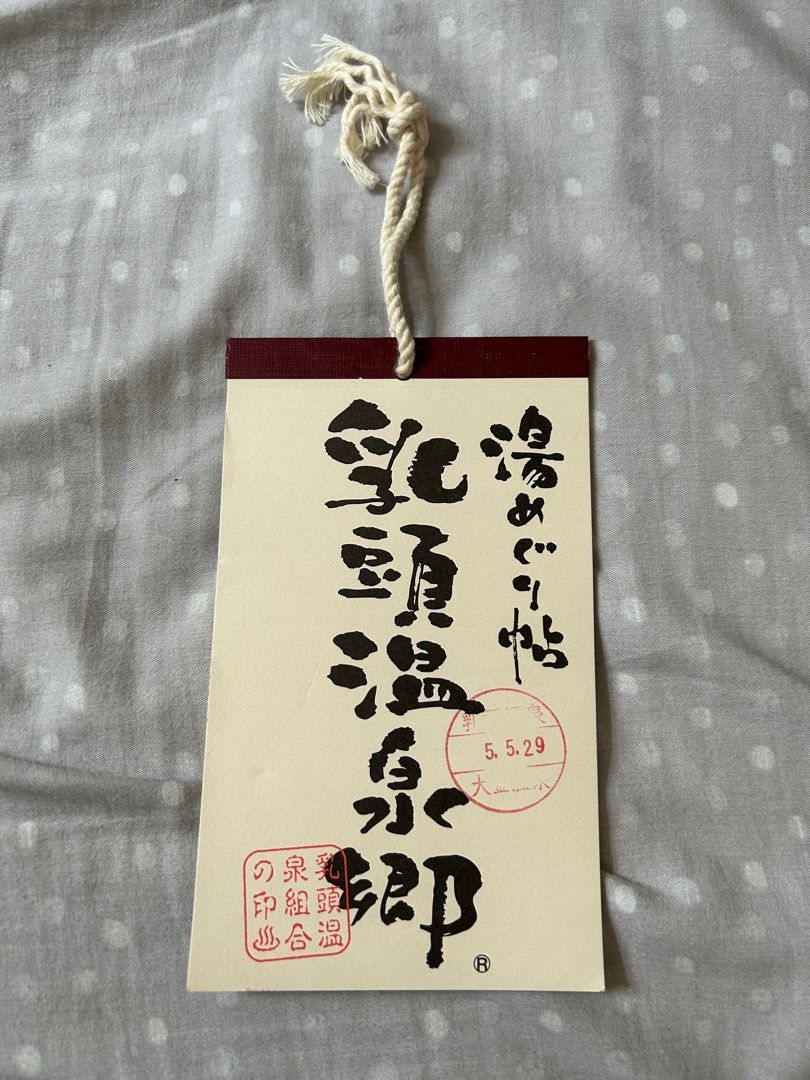 湯めぐり帖
乳頭温泉郷
®
5.5.29
乳頭温
泉組合
の印♨